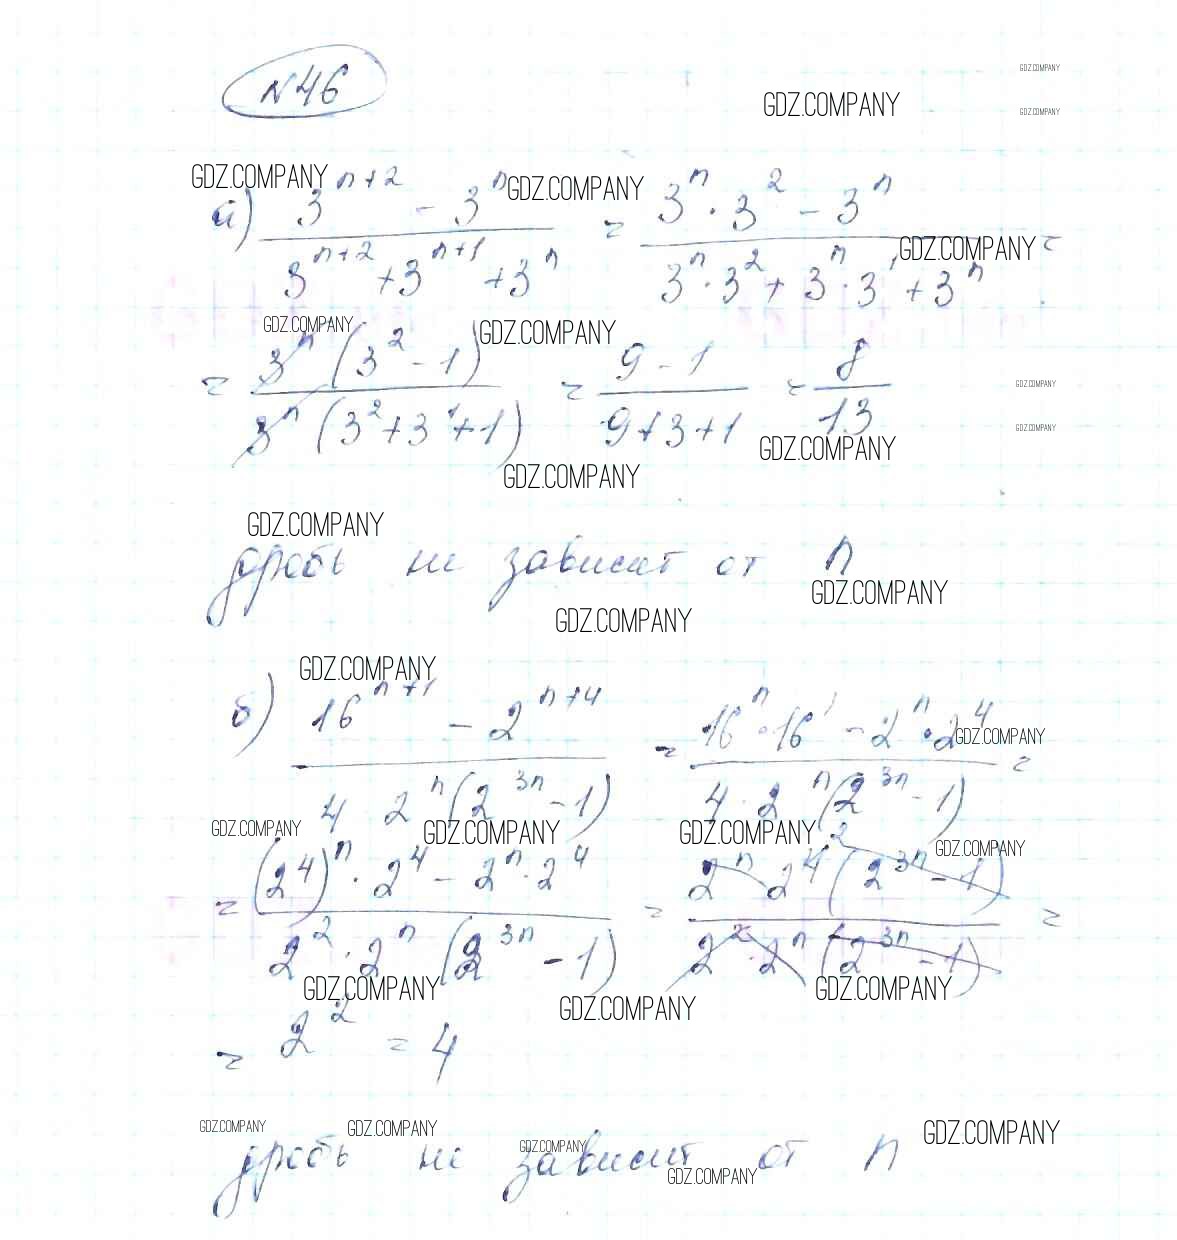 №46
GDZ.COMPANY
GDZ.COMPANY
GDZ.COMPANY
GDZ.COMPANY GDZ.COMPANY
а) (3^{n+2} - 3^n)/(3^{n+2} + 3^{n+1} + 3^n) = (3^n · 3^2 - 3^n)/(3^n · 3^2 + 3^n · 3^1 + 3^n) =
GDZ.COMPANY
GDZ.COMPANY GDZ.COMPANY
= (3^n (3^2 - 1))/(3^n (3^2 + 3^1 + 1)) = (9 - 1)/(9 + 3 + 1) = 8/13
GDZ.COMPANY
GDZ.COMPANY
GDZ.COMPANY
GDZ.COMPANY
GDZ.COMPANY
дробь не зависит от n
GDZ.COMPANY
GDZ.COMPANY
GDZ.COMPANY
б) (16^{n+1} - 2^{n+4})/(4 · 2^n (2^{3n} - 1)) = (16^n · 16^1 - 2^n · 2^4)/(4 · 2^n (2^{3n} - 1)) =
GDZ.COMPANY
GDZ.COMPANY GDZ.COMPANY GDZ.COMPANY GDZ.COMPANY
= ((2^4)^n · 2^4 - 2^n · 2^4)/(2^2 · 2^n (2^{3n} - 1)) = (2^n 2^4 (2^{3n} - 1))/(2^2 · 2^n (2^{3n} - 1)) =
GDZ.COMPANY GDZ.COMPANY GDZ.COMPANY
= 2^2 = 4
GDZ.COMPANY GDZ.COMPANY GDZ.COMPANY GDZ.COMPANY
дробь не зависит от n
GDZ.COMPANY